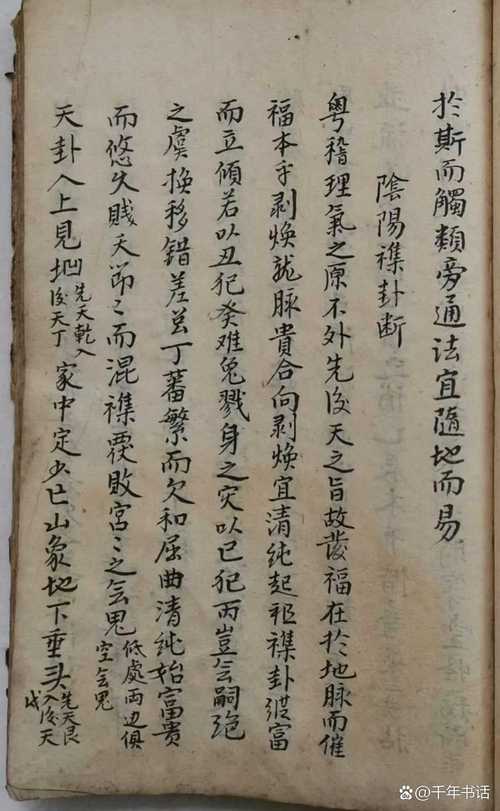 於斯而觸類旁通法宜隨地而易
陰陽襍卦断
粤稽理氣之原不外先後天之旨故發福在於地脉而催
福本乎剥煥龍脉貴合向剥煥宜清純起祖襍卦縱富
而立傾若以丑犯癸难免戮身之灾以巳犯丙豈会嗣絶
之虞換移錯差总丁蕃繁而欠和屈曲清纯始富貴
而悠久賎天節〻而混襍要敗宮〻之会鬼
低處両边俱
空会鬼
天卦入上見凹
先天乾入
後天丁
家中定少亡山象地下垂头
先天艮
入後天
戌
千年书话